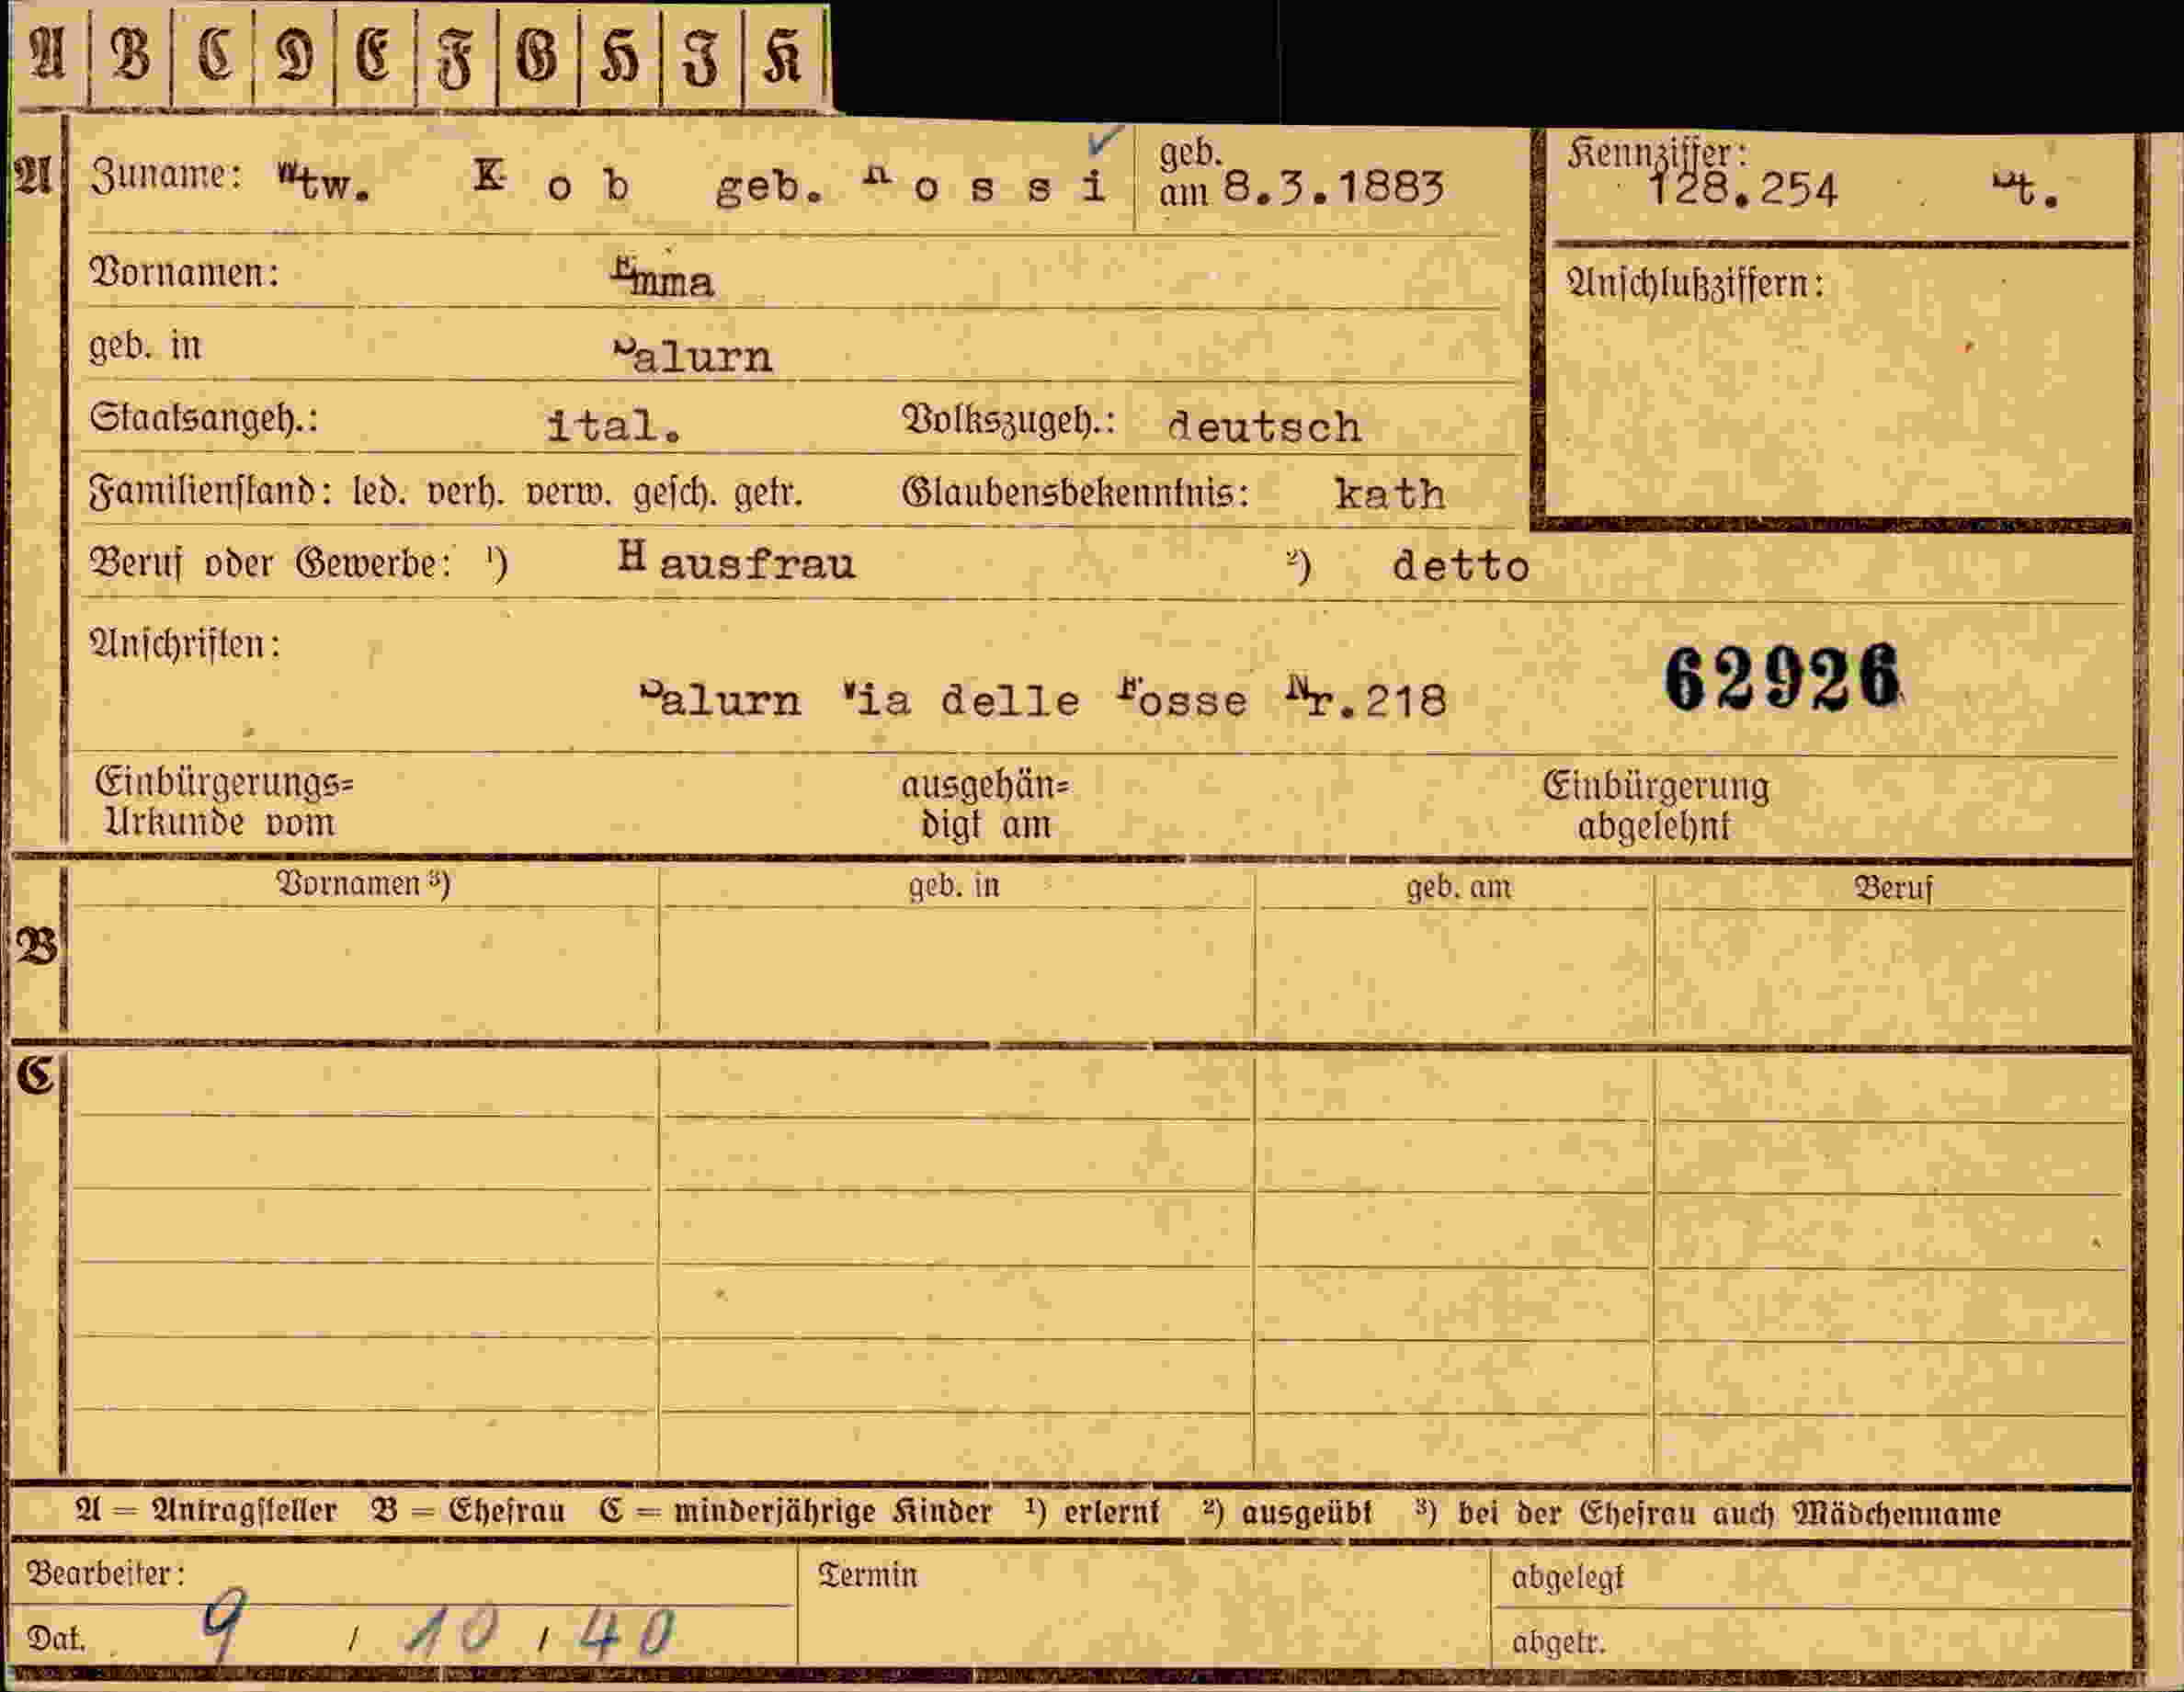 A B C D E F G H I K
A Zuname: Wtw. K o b geb. R o s s i geb. am 8.3.1883 Kennziffer: 128.254
Vornamen: Emma Anschlußziffern:
geb. in Salurn
Staatsangeh.: ital. Volkszugeh.: deutsch
Familienstand: led. verh. verw. gesch. getr. Glaubensbekenntnis: kath
Beruf oder Gewerbe: ¹) Hausfrau ²) detto
Anschriften:
Salurn Via delle Fosse Nr.218 62926
Einbürgerungs= ausgehän= Einbürgerung
Urkunde vom digt am abgelehnt
Vornamen ³) geb. in geb. am Beruf
B
C
A = Antragsteller B = Ehefrau C = minderjährige Kinder ¹) erlernt ²) ausgeübt ³) bei der Ehefrau auch Mädchenname
Bearbeiter: Termin abgelegt
Dat. 9 / 10 / 40 abgetr.